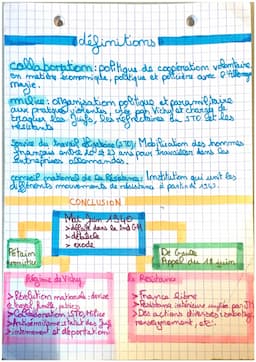 définitions
collaboration : politique de coopération volontaire
en matière économique, politique et policière avec l'Allemagne
nazie.
milice : organisation politique et paramilitaire
aux pratiques violentes, crée par Vichy et chargée de
traquer les Juifs, les réfractaires du STO et les
résistants
Service du travail obligatoire (STO) : Mobilisation des hommes
français entre 20 et 23 ans pour travailler dans les
entreprises allemandes.
conseil national de la Résistance : Institution qui unit les
différents mouvements de résistance à partir de 1943.
CONCLUSION
Mai-Juin 1940
> défaite dans la 2nd GM
> débâcle
> exode
Pétain
armistice
De Gaulle
Appel du 18 juin
Régime de Vichy
> Révolution nationale : devise
travail, famille, patrie
> Collaboration STO, Milice
> Antisémitisme statut des Juifs
> internement et déportation
la Résistance
> France libre
> Résistance intérieure unifiée par JM
> Des actions diverses : sabotage,
renseignement, etc.